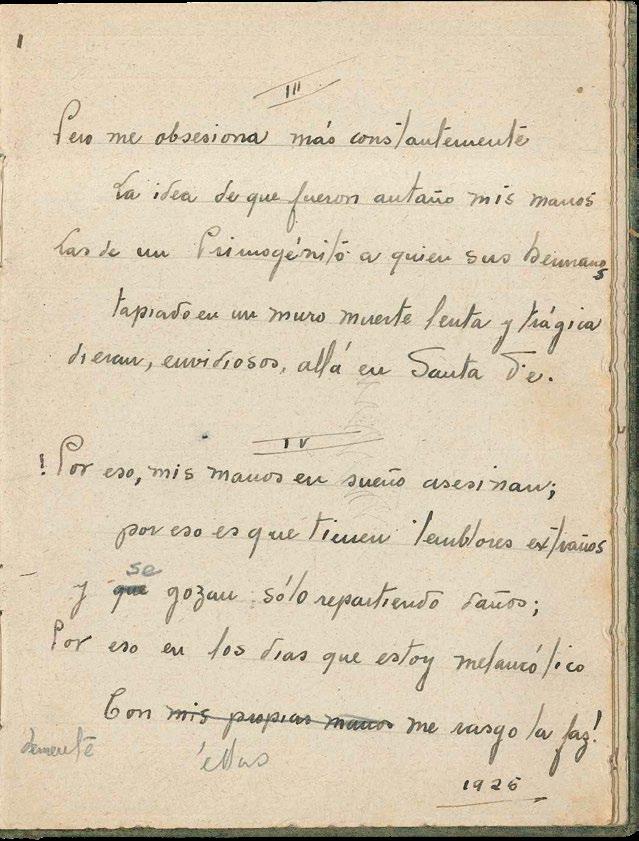 1
III
Pero me obsesiona más constantemente
La idea de que fueron antaño mis manos
Las de un Primogénitó a quien sus hermanos
tapiado en un muro muerte lenta y trágica
dieran, envidiosos, allá en Santa Fe.
IV
¡Por eso, mis manos en sueño asesinan;
por eso es que tienen temblores extraños
se
y que gozan sólo repartiendo daños;
Por eso en los dias que estoy melancólico
Con mis propias manos me rasgo la faz!
demente
éllas
1926